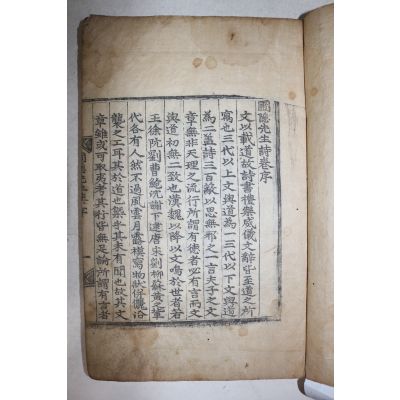 圃隱先生詩卷序
文以載道故詩書禮樂威儀文辭皆至道之所
寓也三代以上文與道為一三代以下文與道
為二盖詩三百蔽以思無邪之一言夫子之文
章無非天理之流行所謂有德者必有言而文
與道初無二致也漢魏以降以文鳴於世者若
王徐阮劉曹鮑沈謝下逮唐宋劉柳蘇黃之輩
代各有人然不過風雲月露模寫物狀倂儷沿
襲之工耳其於道也槩乎其未有聞也故其文
章雖或可取夷考其行皆無足論所謂有言者